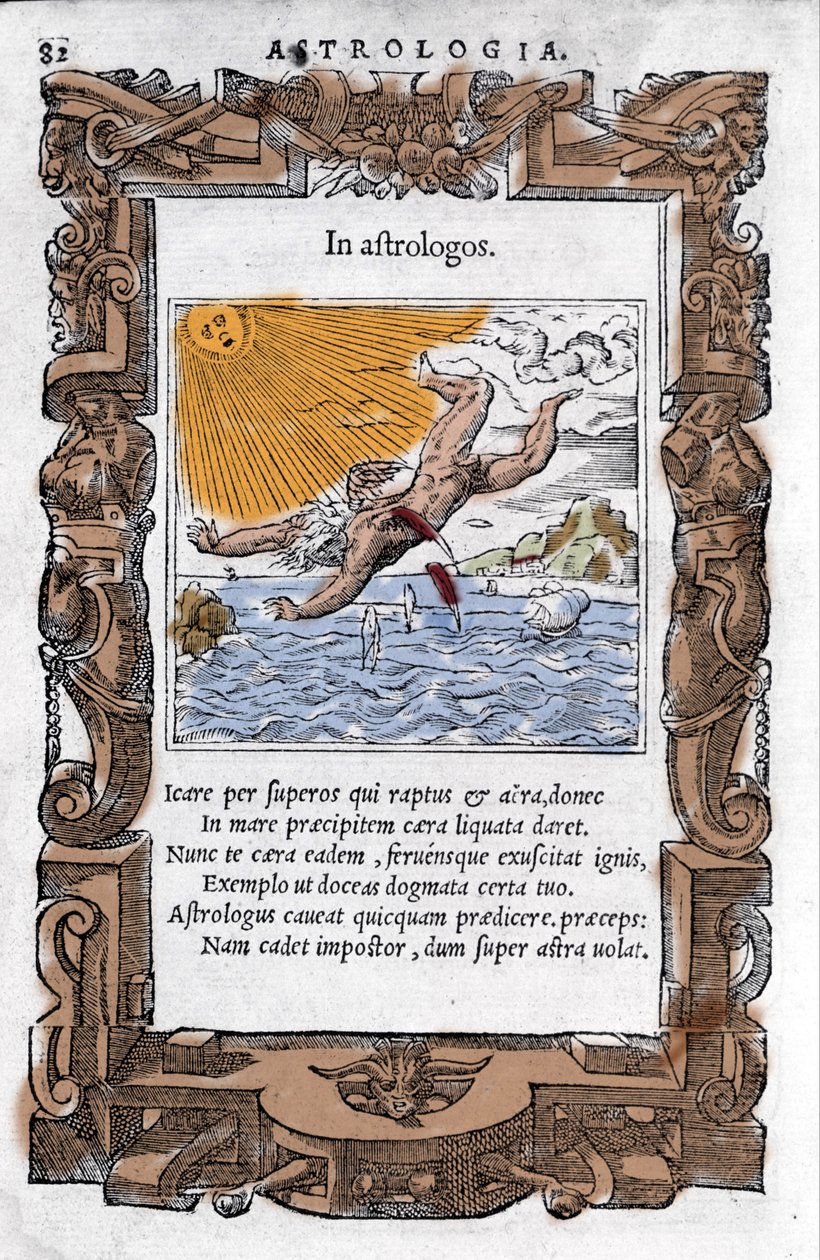 82
ASTROLOGIA.
In aſtrologos.
Icare per ſuperos qui raptus & aëra, donec
In mare præcipitem cæra liquata daret.
Nunc te cæra eadem, feruénsque exuſcitat ignis,
Exemplo ut doceas dogmata certa tuo.
Aſtrologus caueat quicquam prædicere. præceps:
Nam cadet impoſtor, dum ſuper aſtra uolat.